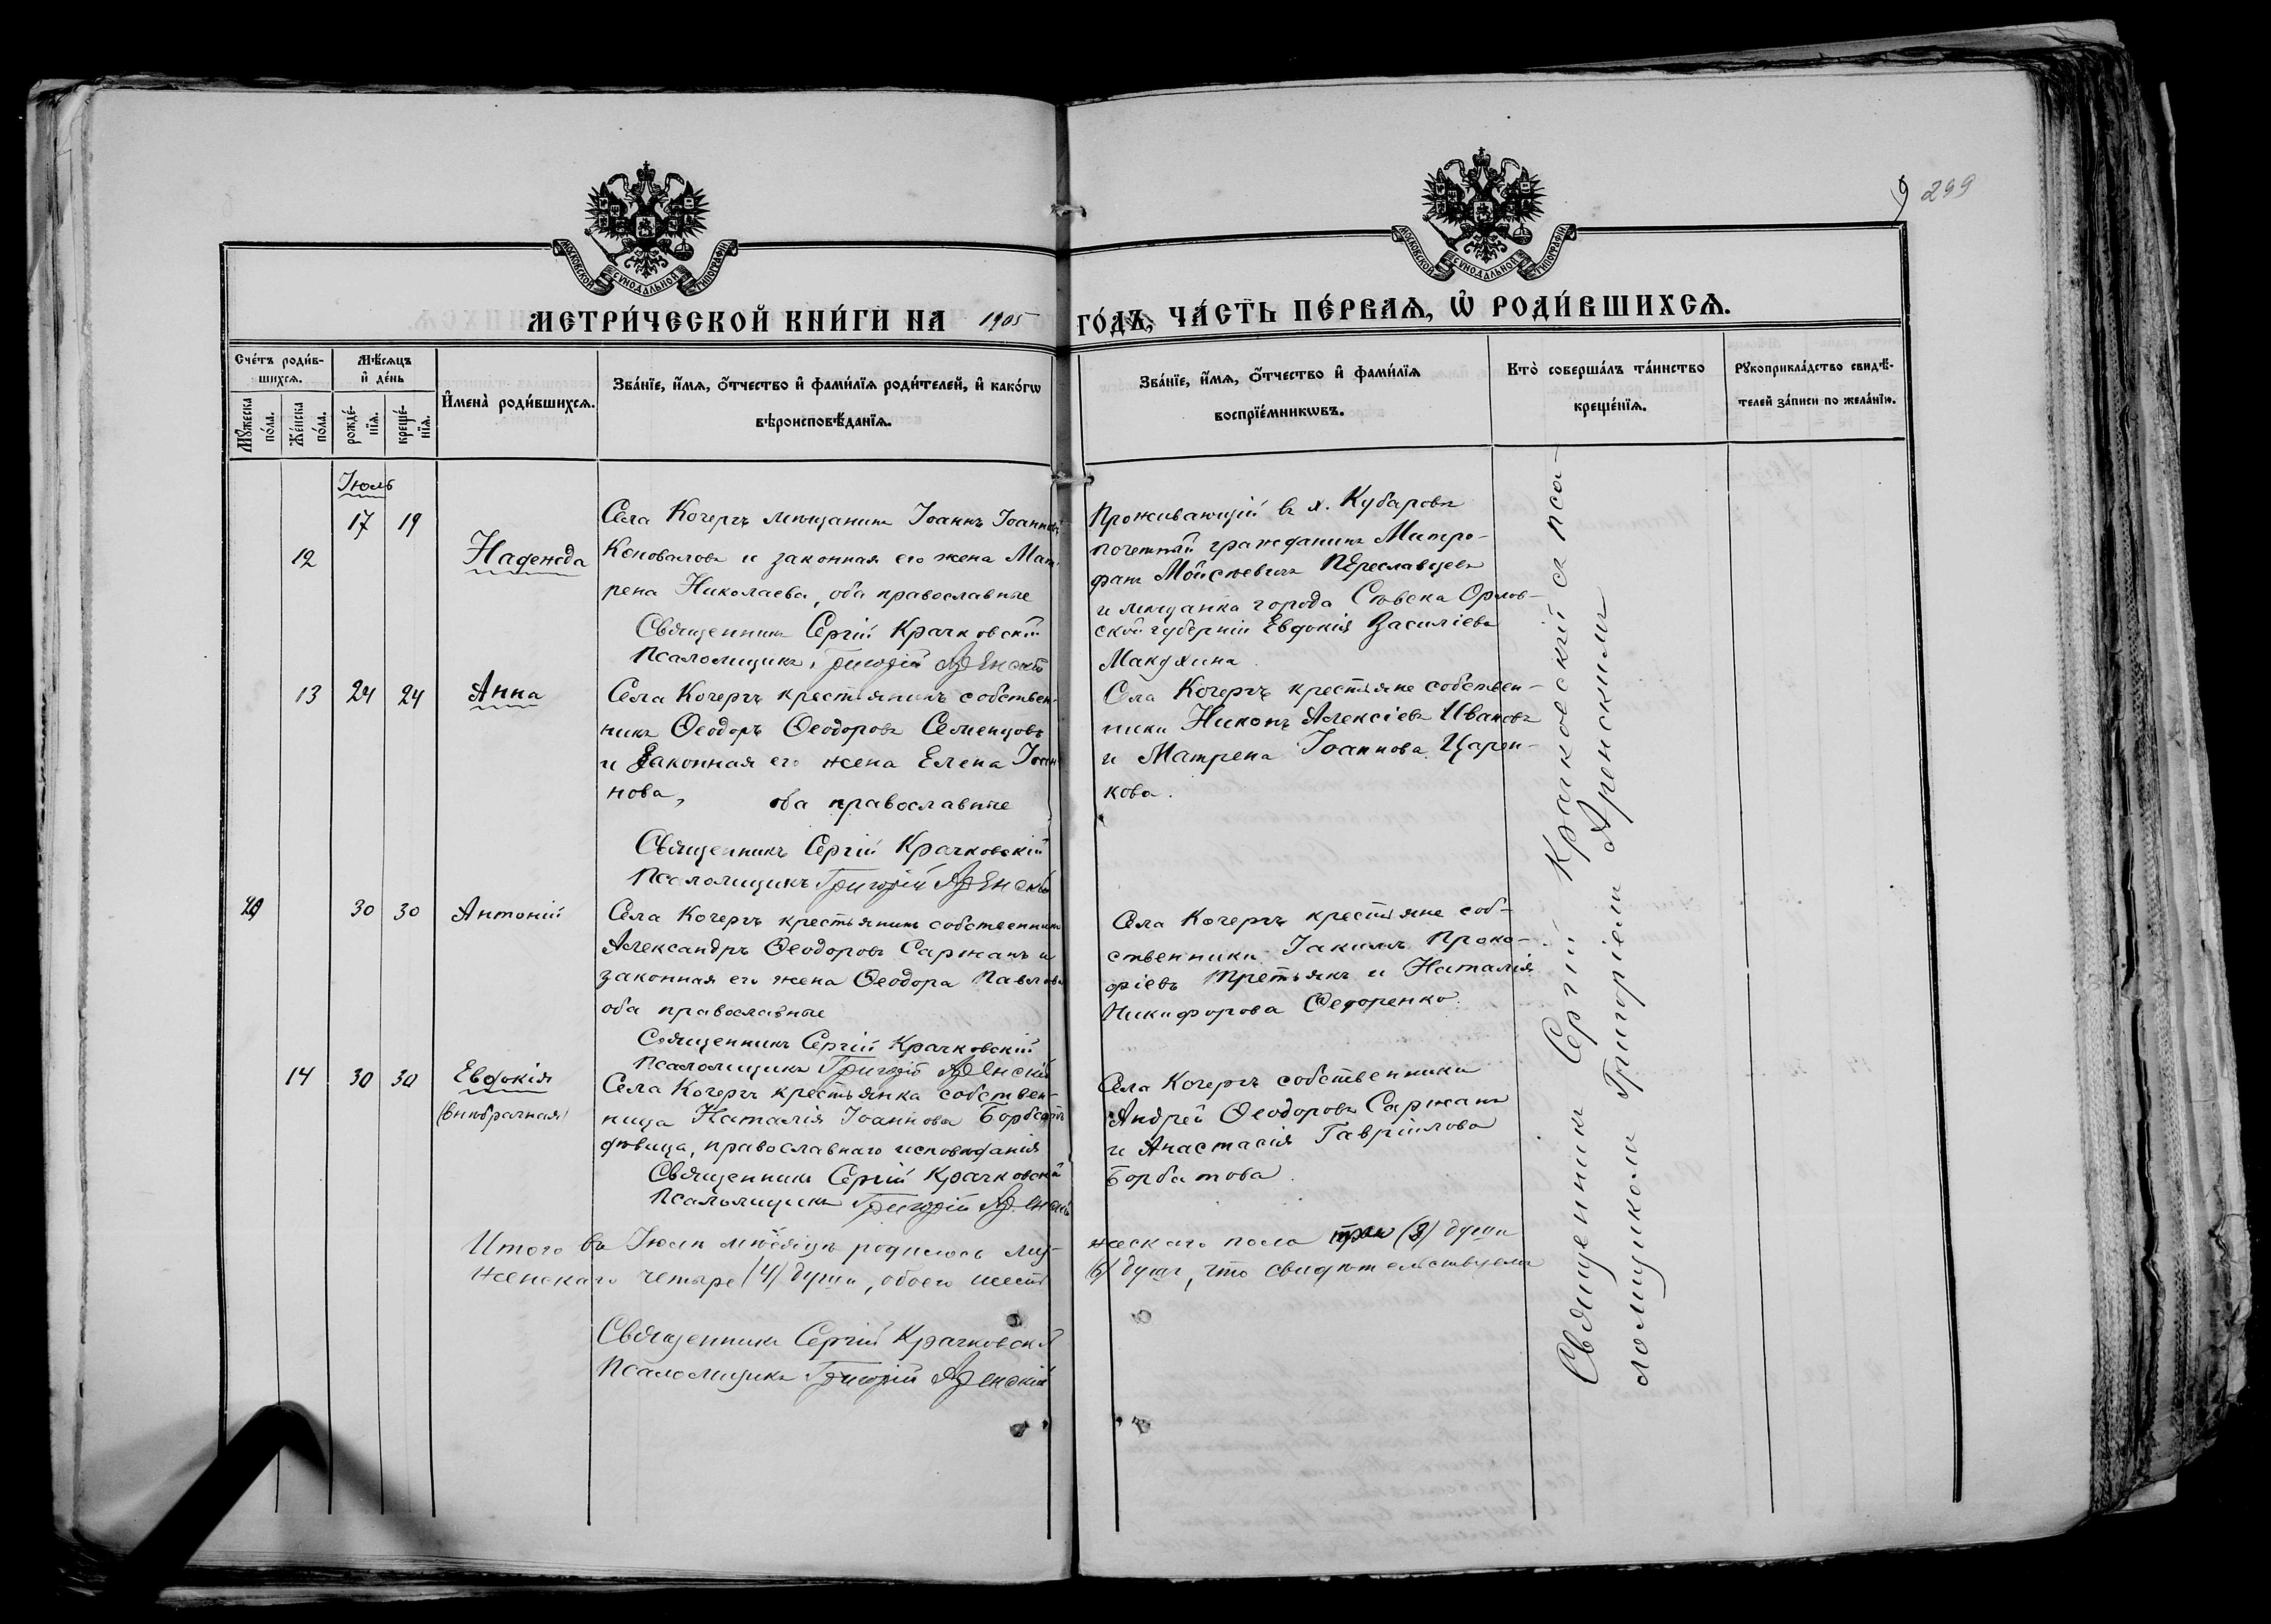 9 299
МОСКОВСКОЙ СѴНОДАЛЬНОЙ ТИПОГРАФІИ
МОСКОВСКОЙ СѴНОДАЛЬНОЙ ТИПОГРАФІИ
МЕТРИ́ЧЕСКОЙ КНИ́ГИ НА 1905 ГО́ДЪ, ЧА́СТЬ ПЕ́РВАѦ, Ѡ҆ РОДИ́ВШИХСѦ.
Сче́тъ роди́в-
шихсѧ.
Мꙋ́жеска по́ла.
Же́нска по́ла.
Мѣ́сѧцъ
и҆ де́нь
рожде́-
нїѧ.
креще́-
нїѧ.
И҆мена̀ роди́вшихсѧ.
Зва́нїе, и҆́мѧ, ѻ҆́тчество и҆ фами́лїѧ роди́телей, и҆ како́гѡ
вѣроисповѣ́данїѧ.
Зва́нїе, и҆́мѧ, ѻ҆́тчество и҆ фами́лїѧ
воспрїе́мникѡвъ.
Кто̀ соверша́лъ та́инство
креще́нїѧ.
Рꙋкоприкла́дство свидѣ́-
телей за́писи по жела́нїю.
Іюль
12
17 19
Надежда
Села Кочергъ мѣщанинъ Іоаннъ Іоанновъ
Коновалов и законная его жена Мат-
рена Николаева, оба православные
Священникъ Сергій Крачковскій
Псаломщикъ Григорій Аренскій
Проживающій в х. Кубаровъ
почетный гражданинъ Митро-
фанъ Мойсѣевичъ Переславцевъ
и мѣщанка города Сѣвска Орлов-
ской губерніи Евдокія Василіева
Макухина
13 24 24
Анна
Села Кочергъ крестьянинъ собствен-
никъ Ѳеодоръ Ѳеодоровъ Семенцовъ
и законная его жена Елена Іоан-
нова, оба православные
Священникъ Сергій Крачковскій
Псаломщикъ Григорій Аренскій
Села Кочергъ крестьяне собствен-
ники Никонъ Алексіевъ Ивановъ
и Матрена Іоаннова Царен-
кова.
30 30
Антоній
Села Кочергъ крестьянинъ собственникъ
Александръ Ѳеодоровъ Саржанъ и
законная его жена Ѳеодора Павлова
оба православные
Священникъ Сергій Крачковскій
Псаломщикъ Григорій Аренскій
Села Кочергъ крестьяне соб-
ственники Іакимъ Проко-
фіевъ Третьякъ и Наталія
Никифорова Ѳедоренко.
14 30 30
Евдокія
(внѣбрачная)
Села Кочергъ крестьянка собствен-
ница Наталія Іоаннова Борбатова
дѣвица, православнаго исповѣданія
Священникъ Сергій Крачковскій
Псаломщикъ Григорій Аренскій
Села Кочергъ собственники
Андрей Ѳеодоровъ Саржанъ
и Анастасія Гавріилова
Борбатова.
Священникъ Сергій Крачковскій съ пса-
ломщикомъ Григоріемъ Аренскимъ
Итого въ Іюлѣ мѣсяцѣ родилось му-
жескаго пола три (3) души
женскаго четыре (4) души, обоего шесть
(6) душъ, что свидѣтельствуемъ
Священникъ Сергій Крачковскій
Псаломщикъ Григорій Аренскій